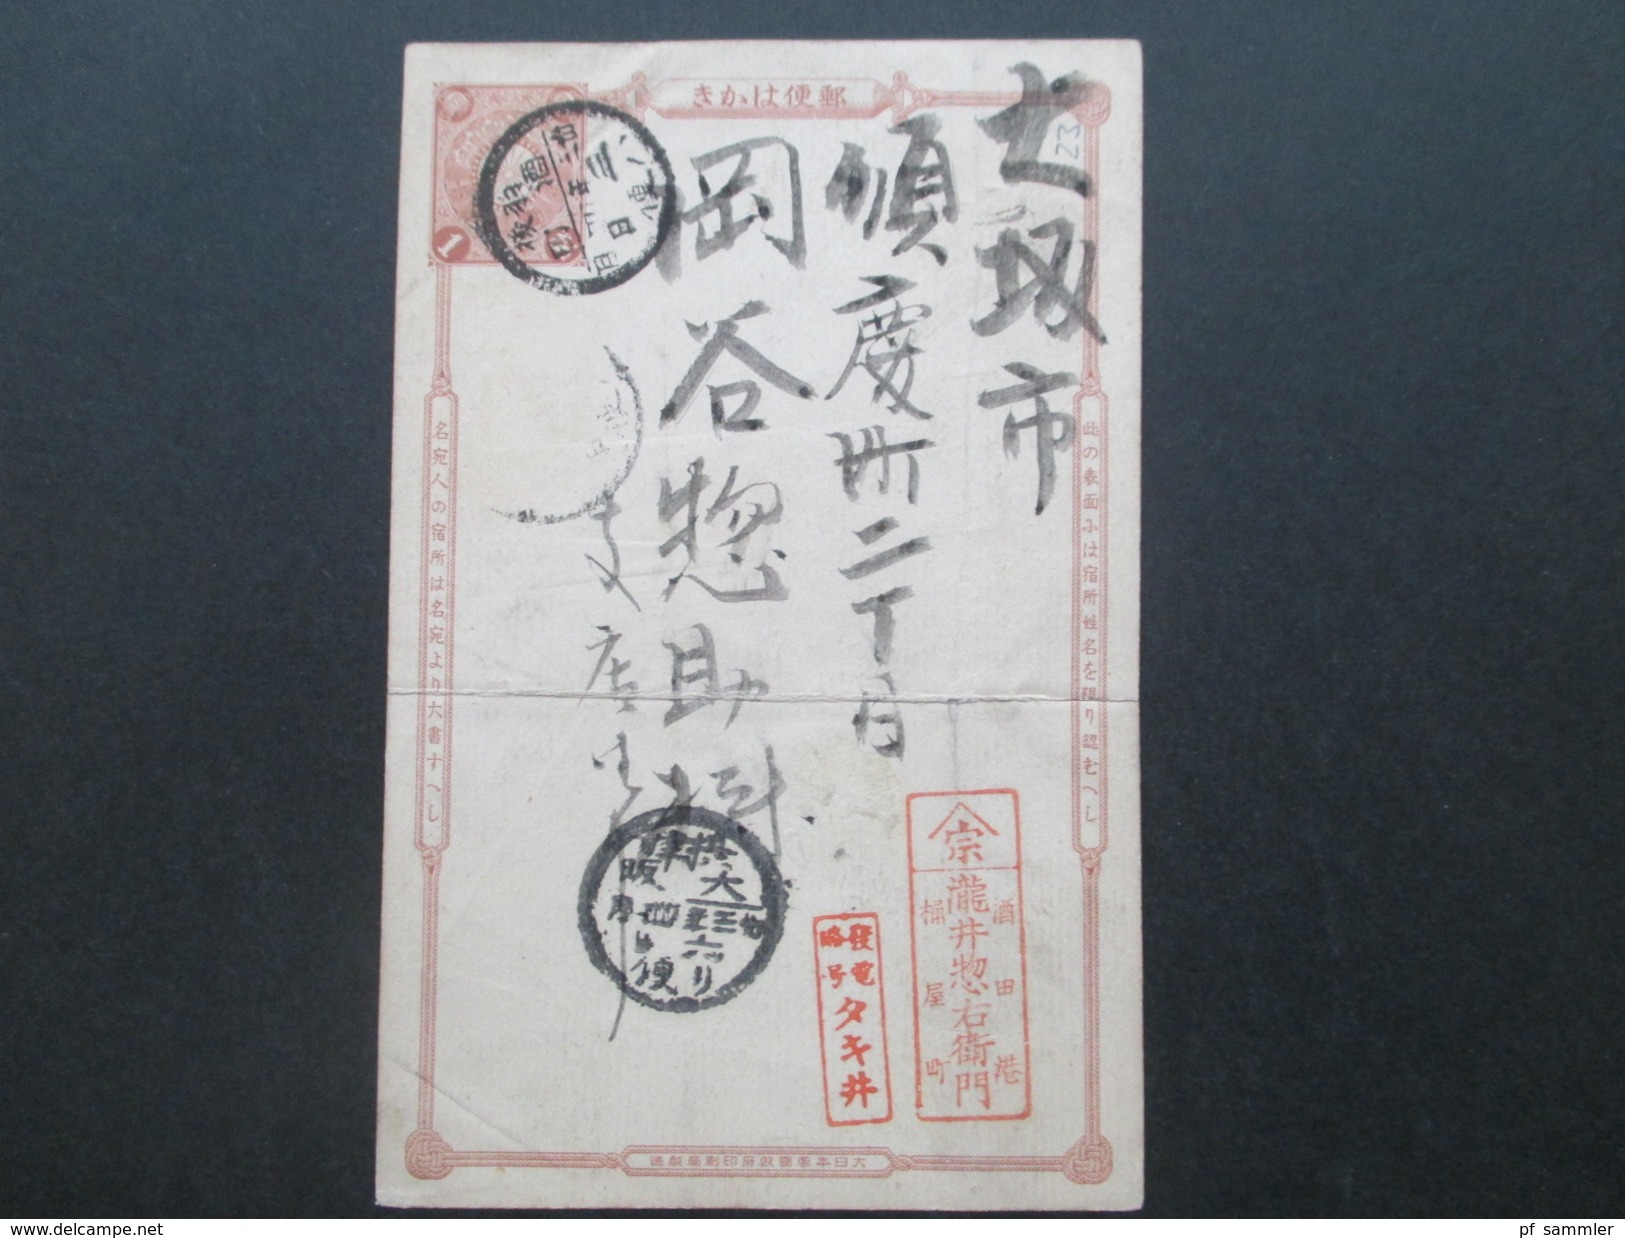 郵便はかき
大坂市
順慶町二丁目
岡谷惣助様
支店
此の表面には宿所姓名を限り認むへし
名宛人の宿所は名宛より大書すへし
1
23
羽後
酒田
摂津
大阪
四
便
宗
酒田港
瀧井惣右衛門
桶屋町
發電
略号
タキ井
大日本帝國政府印刷局製造
pf sammler
delcampe.net